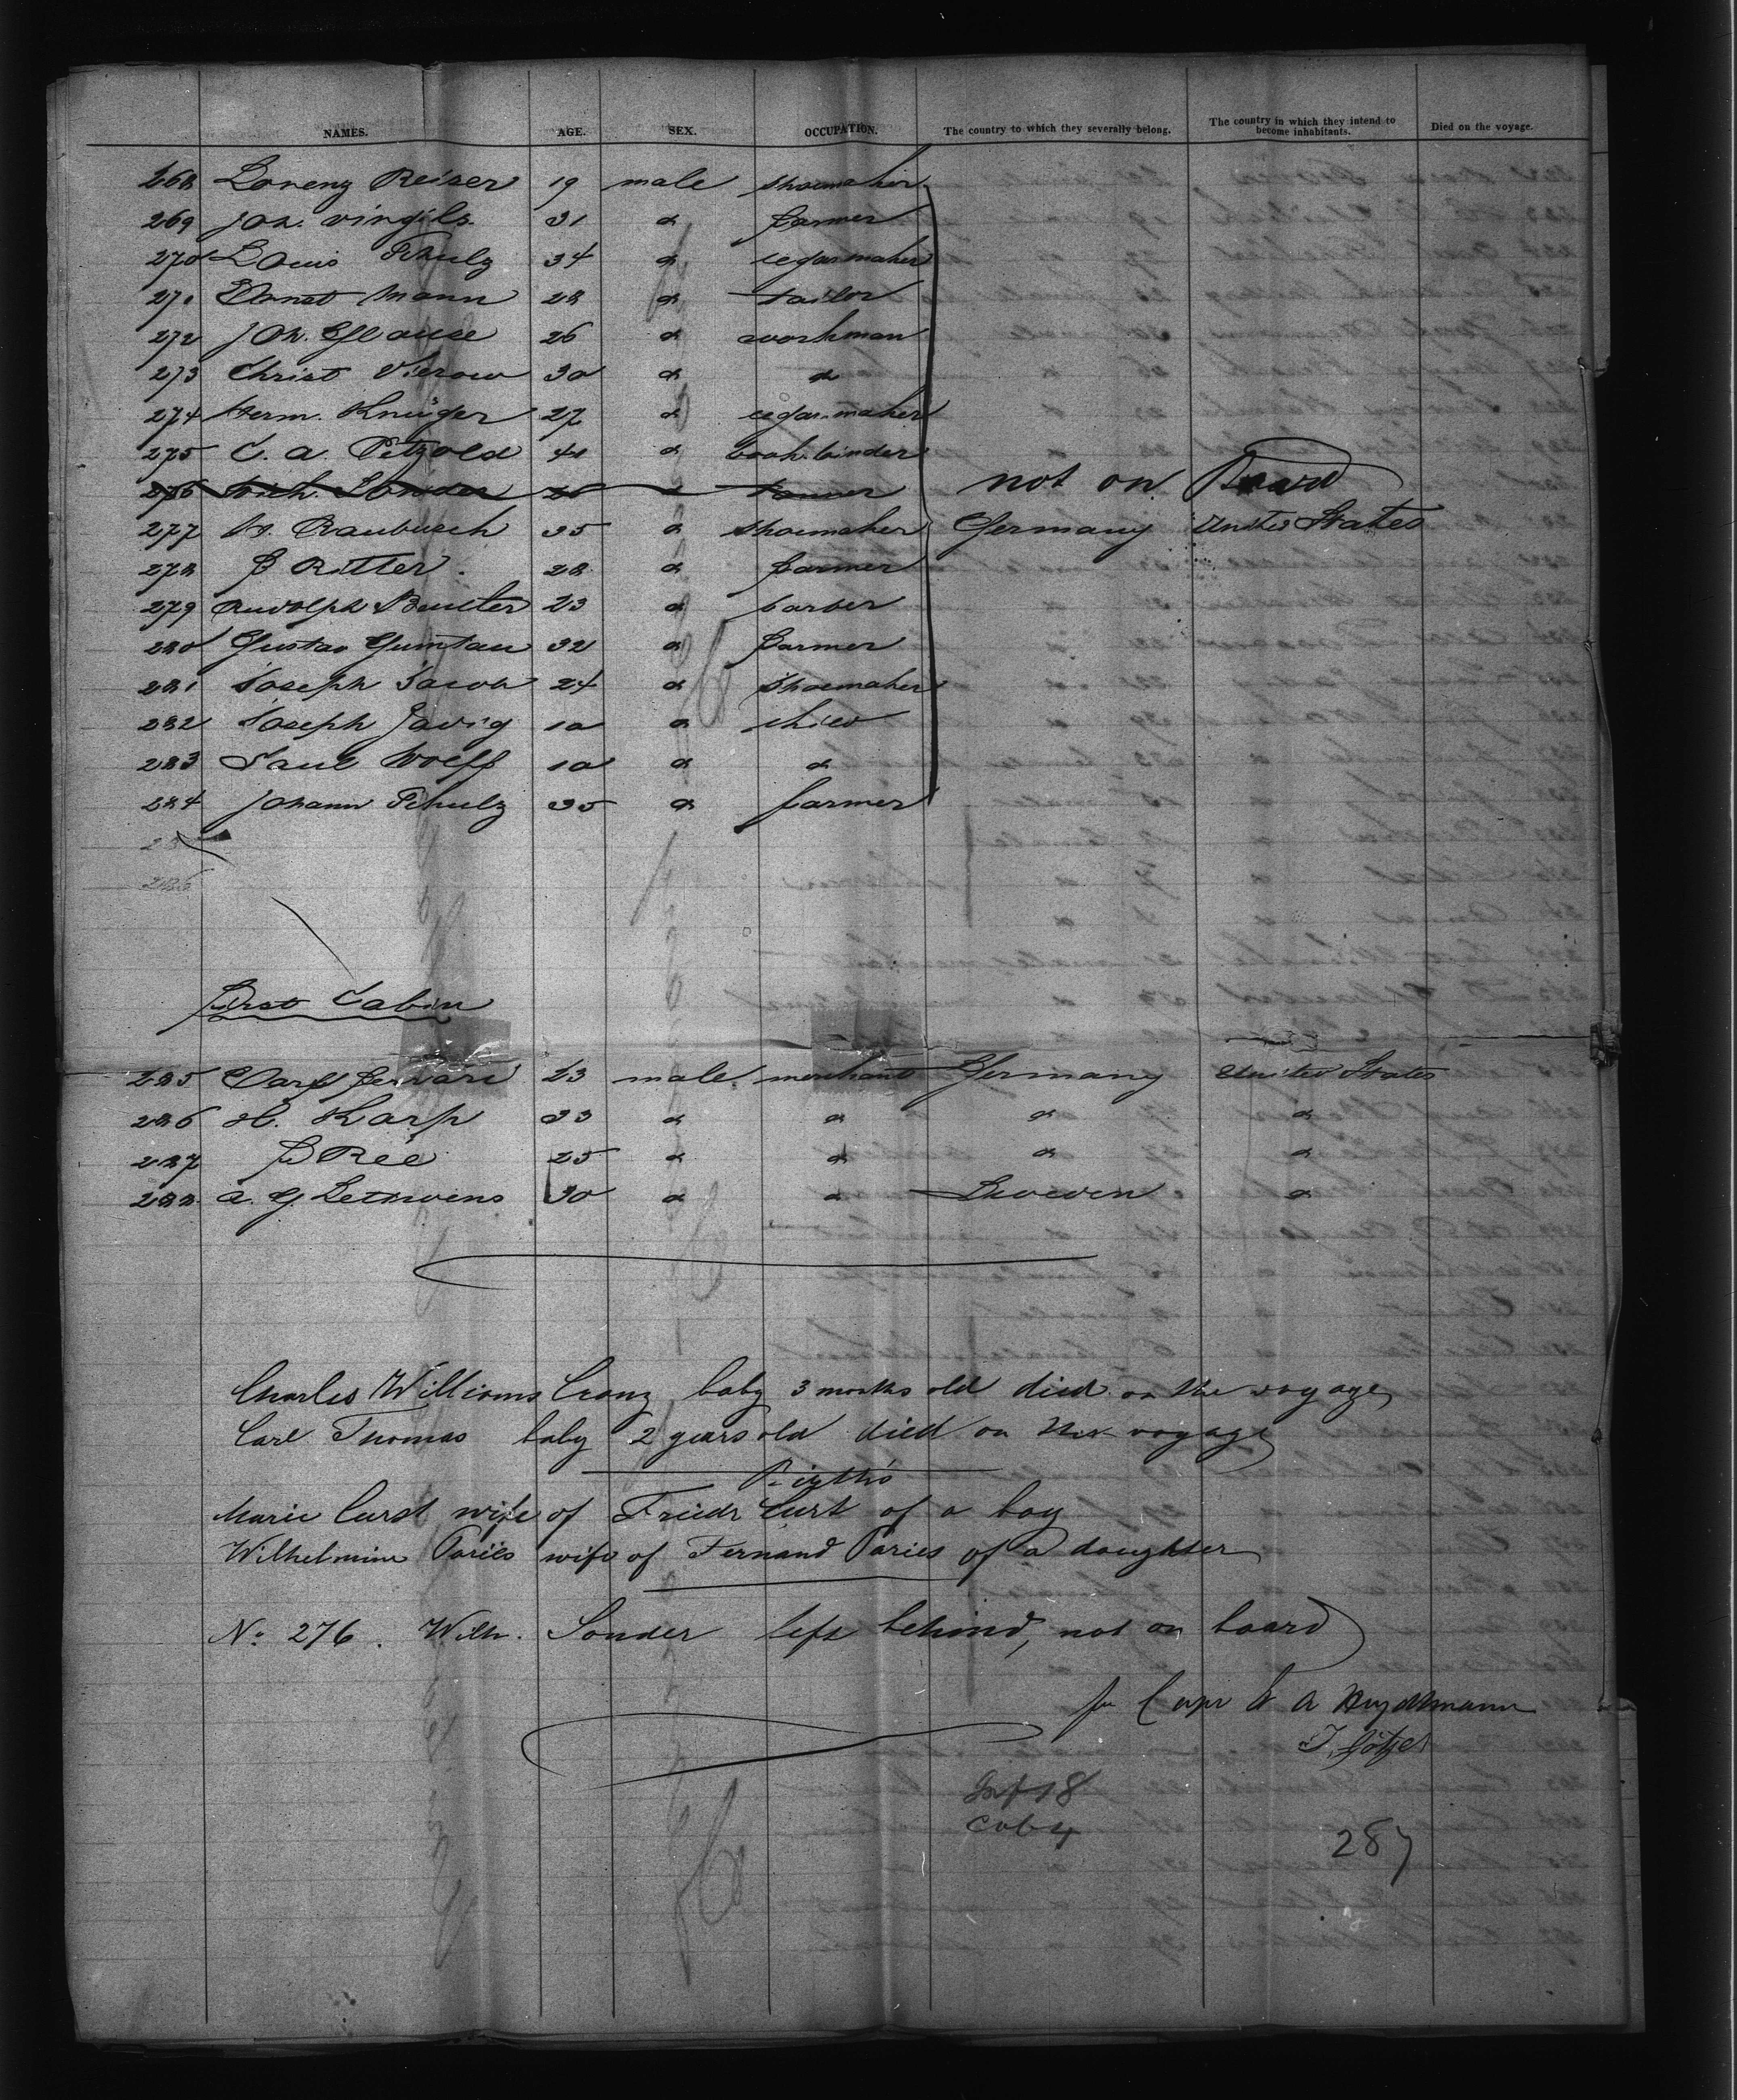 NAMES. AGE. SEX. OCCUPATION. The country to which they severally belong. The country in which they intend to become inhabitants. Died on the voyage.
268 Lorenz Reiser 19 male shoemaker
269 Joh. Vingils 31 " farmer
270 Louis Schulz 34 " cegarmaker
271 Ernst Mann 28 " tailor
272 Joh. 26 " workman
273 Christ Vierow 30 " "
274 Herm. Krüger 27 " cegar maker
275 C. A. Petzold 40 " book binder
276 Wilh. Sonder " not on Board
277 W. Raubusch 35 " shoemaker Germany United States
278 F Ritter 28 " farmer
279 Rudolph Beuster 23 " barber
280 Gustav Gumtau 32 " farmer
281 Joseph Jacob 24 " shoemaker
282 Joseph 10 " child
283 Saul Wolff 10 " "
284 Johann Schulz 35 " farmer
286
First Cabin
285 Carl Ferrari 23 male merchant Germany United States
286 H. Karp 33 " " " "
287 F Ree 25 " " " "
288 A. G. 30 " " Sweden "
Charles Williams Cranz baby 3 months old died on the voyage
Carl Thomas baby 2 years old died on the voyage
Birth's
Marie Curst wife of Friedr Curst of a boy
Wilhelmine Paries wife of Fernand Paries of a daughter
No 276. Wilh. Sonder left behind, not on board
for Capt
Inf 18
Cab 4
287